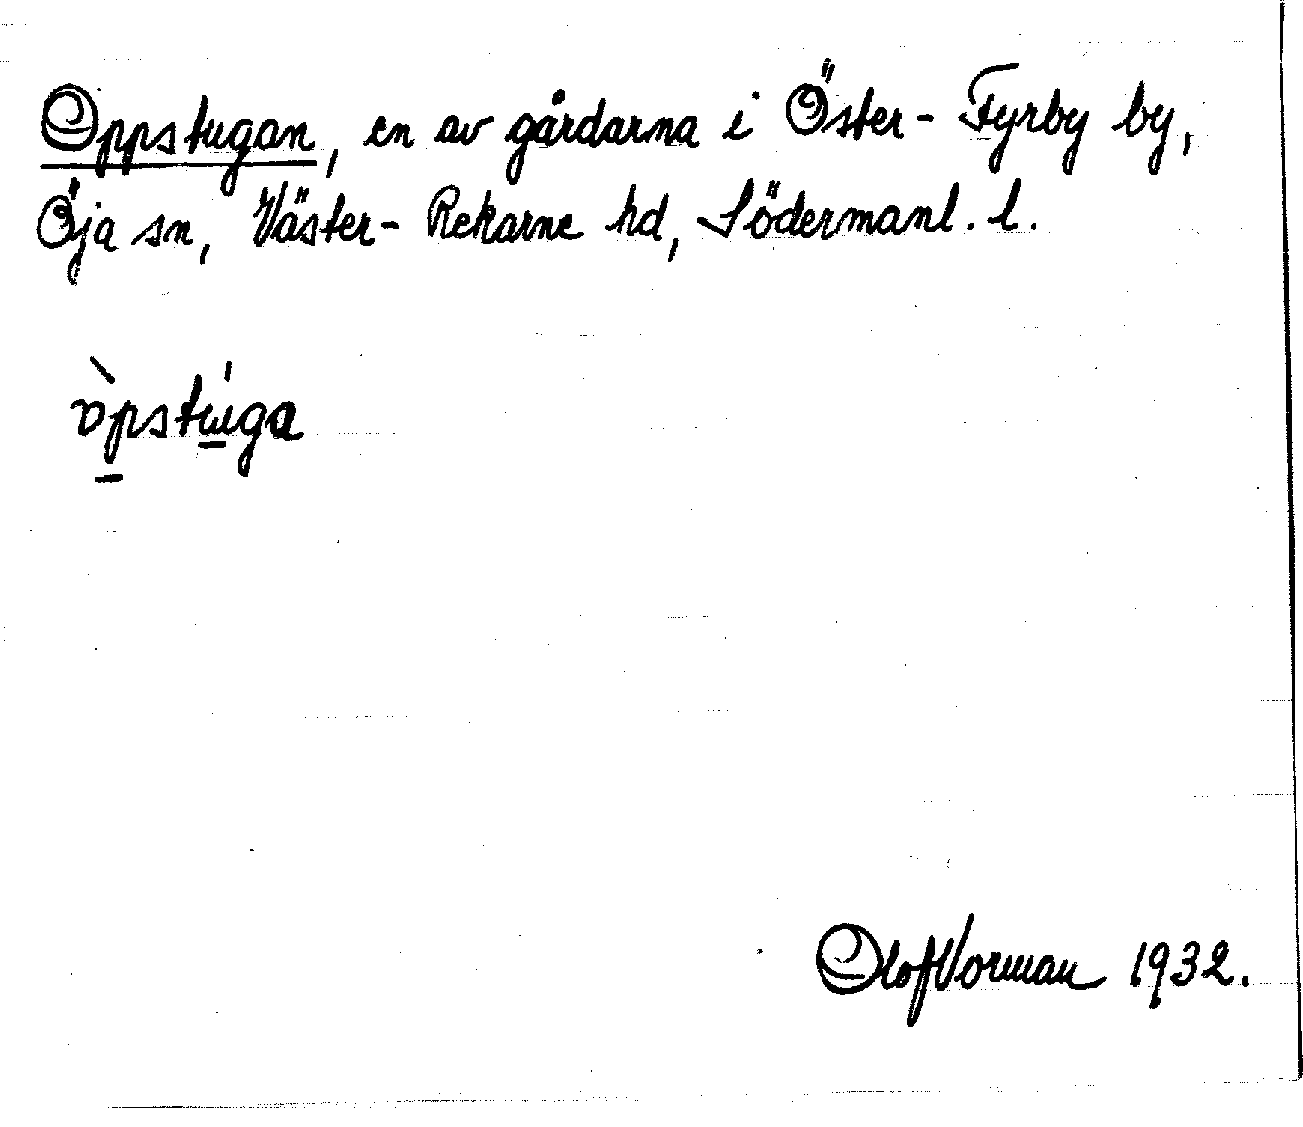 Oppstugan, en av gårdarna i Öster-Fyrby by,
Öja sn, Väster-Rekarne hd, Södermanl. l.
òpstu̲ga
Olof Vorman 1932.